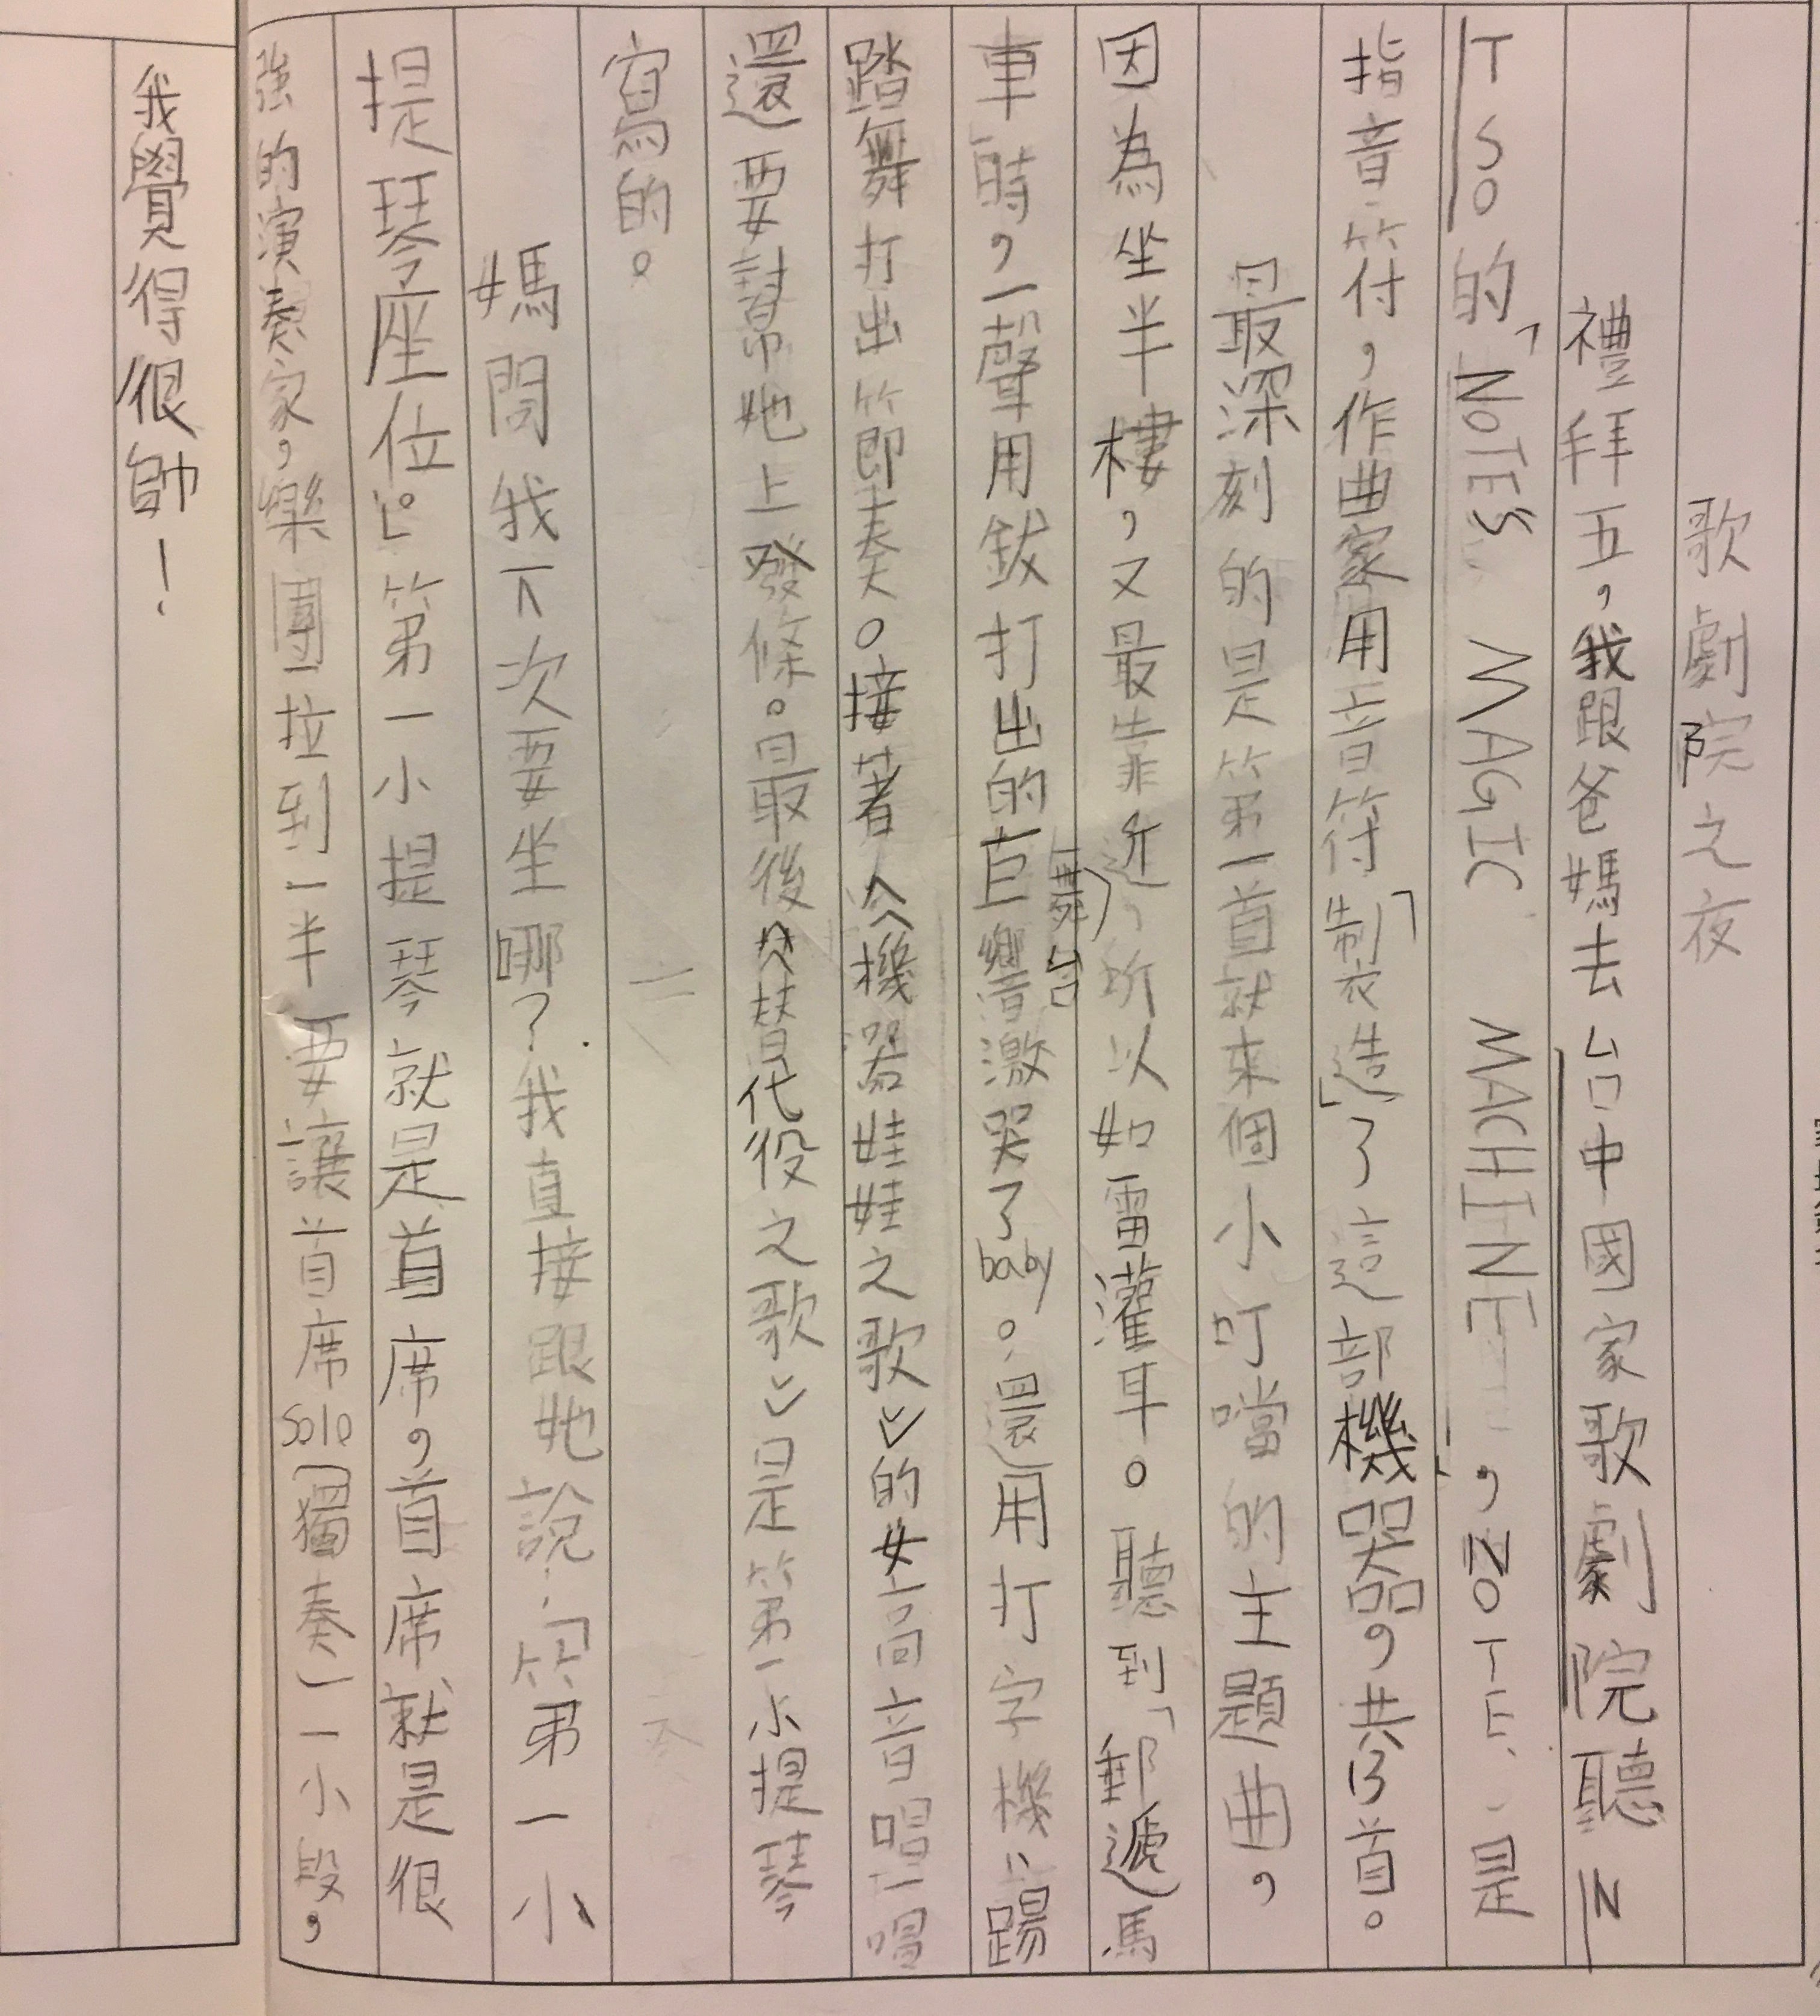 歌劇院之夜
禮拜五，我跟爸媽去台中國家歌劇院聽IN
TSO的「NOTES MAGIC MACHINE」，NOTE、是
指音符，作曲家用音符「製造」了這部機器，共13首。
最深刻的是第一首就來個小叮噹的主題曲，
因為坐半樓，又最靠近舞台，所以如雷灌耳。聽到「郵遞馬
車」時，一聲用鈸打出的巨響激哭了baby。還用打字機、踢
踏舞打出節奏。接著《機器娃娃之歌》的女高音唱一唱
還要幫她上發條。最後《替代役之歌》是第一小提琴
寫的。
媽問我下次要坐哪？我直接跟她說：「第一小
提琴座位。」第一小提琴就是首席，首席就是很
強的演奏家，樂團拉到一半要讓首席solo（獨奏）一小段，
我覺得很帥！